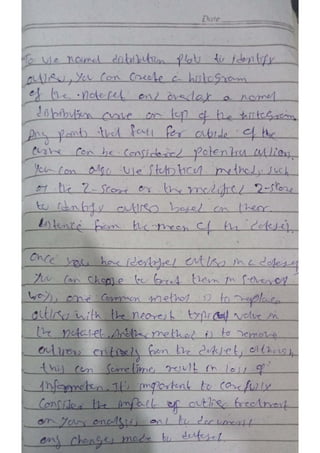 Date
To use normal distribution plots to identify
outliers, you can create a histogram
of the dataset and overlay a normal
distribution curve on top of the histogram
Any points that fall far outside of the
curve can be considered potential outliers.
You can also use statistical methods such
as the Z-score or the modified Z-score
to identify outliers based on their
distance from the mean of the dataset.
Once you have identified outliers in a dataset
you can choose to treat them in several
ways, one common method is to replace
outliers with the nearest typical value in
the dataset. Another method is to remove
outliers entirely from the dataset, although
this can sometime result in loss of
information. It's important to carefully
consider the impact of outlier treatment
on your analysis and to document
any changes made to dataset.